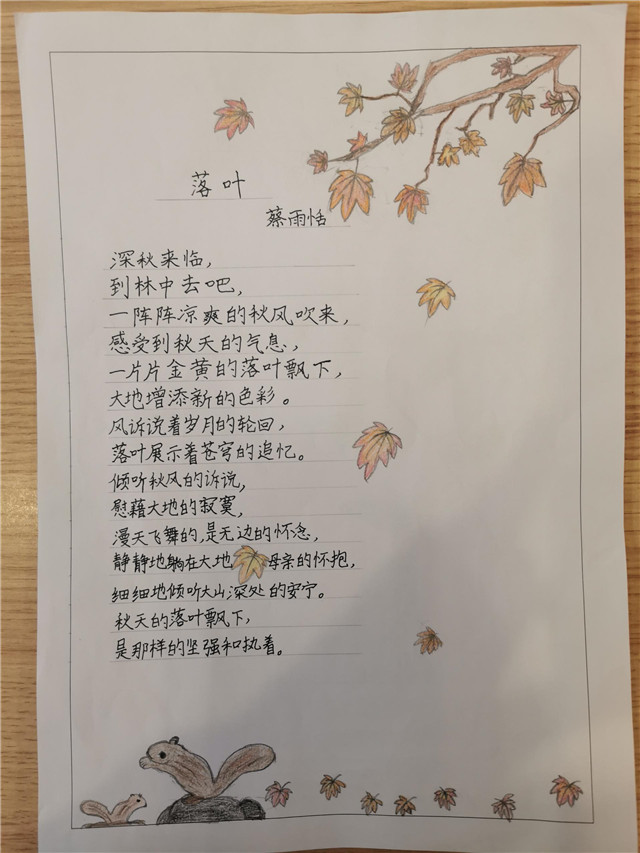 落叶
蔡雨恬
深秋来临，
到林中去吧，
一阵阵凉爽的秋风吹来，
感受到秋天的气息，
一片片金黄的落叶飘下，
大地增添新的色彩。
风诉说着岁月的轮回，
落叶展示着苍穹的追忆。
倾听秋风的诉说，
慰藉大地的寂寞，
漫天飞舞的，是无边的怀念，
静静地躺在大地母亲的怀抱，
细细地倾听大山深处的安宁。
秋天的落叶飘下，
是那样的坚强和执着。